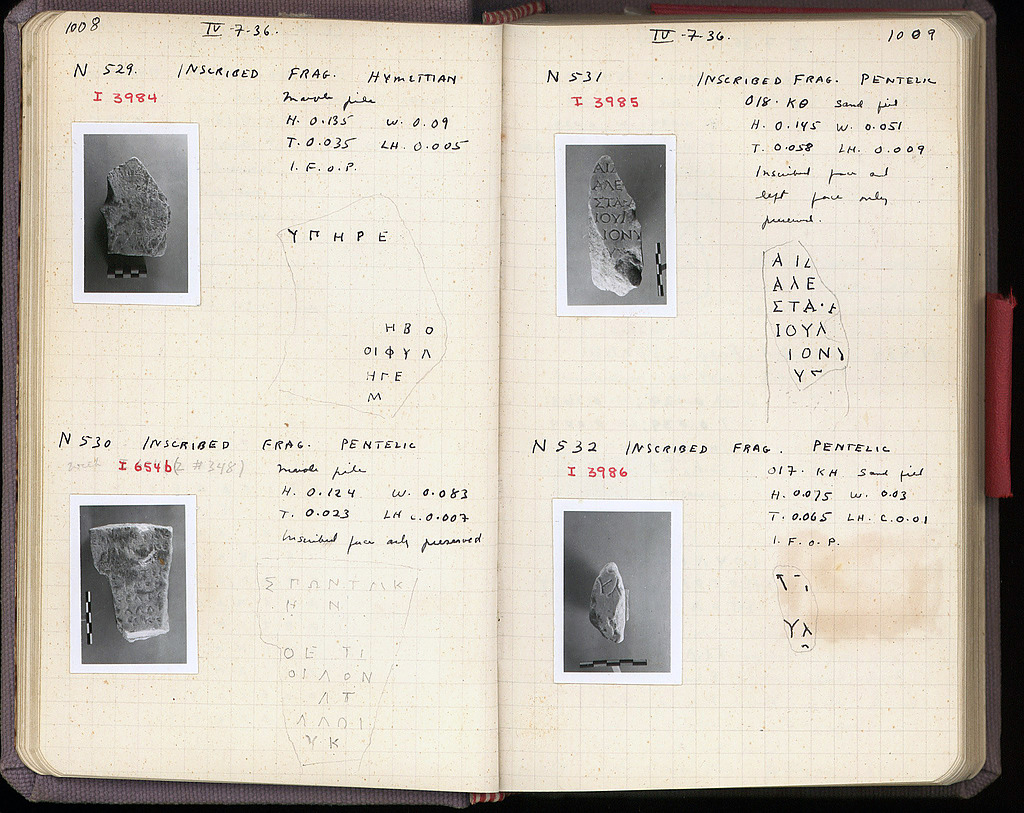 1008
IV-7-36.
N 529. INSCRIBED FRAG. HYMETTIAN
I 3984
Marble pile
H. 0.135 W. 0.09
T. 0.035 LH. 0.005
I. F. O. P.
ΥΠΗΡΕ
ΗΒΟ
ΟΙΦΥΛ
ΗΓΕ
Μ
N 530 INSCRIBED FRAG. PENTELIC
I 654b (2 #348)
Marble pile
H. 0.124 W. 0.083
T. 0.023 LH c. 0.007
Inscribed face only preserved
ΗΝ
ΟΕ ΤΙ
ΥΚ
IV-7-36.
1009
N 531 INSCRIBED FRAG. PENTELIC
I 3985
018·ΚΘ sand fill
H. 0.145 W. 0.051
T. 0.058 LH. 0.009
Inscribed face and
left face only
preserved.
ΑΙΛ
ΑΛΕ
ΣΤΑ
ΙΟΥΛ
ΙΟΝ
Υ
N 532 INSCRIBED FRAG. PENTELIC
I 3986
017·ΚΗ sand fill
H. 0.075 W. 0.03
T. 0.065 LH. C.0.01
I. F. O. P.
ΥΛ